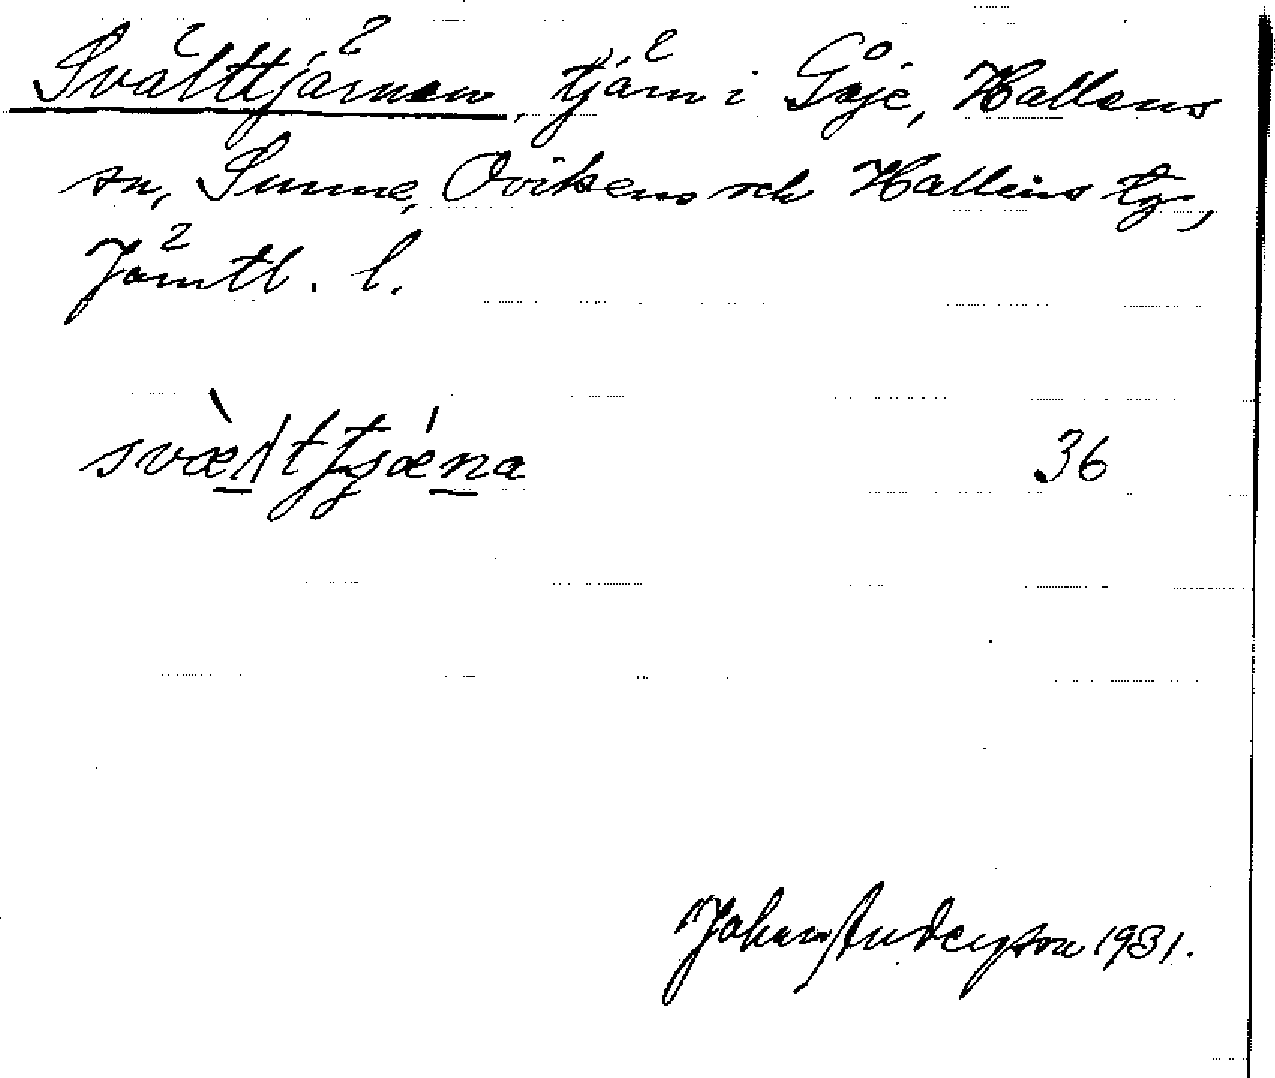 Svälttjärnen, tjärn i Gåje, Hallens
sn, Sunne, Ovikens och Hallens tg,
Jämtl. l.
36
Johan Anderson 1931.